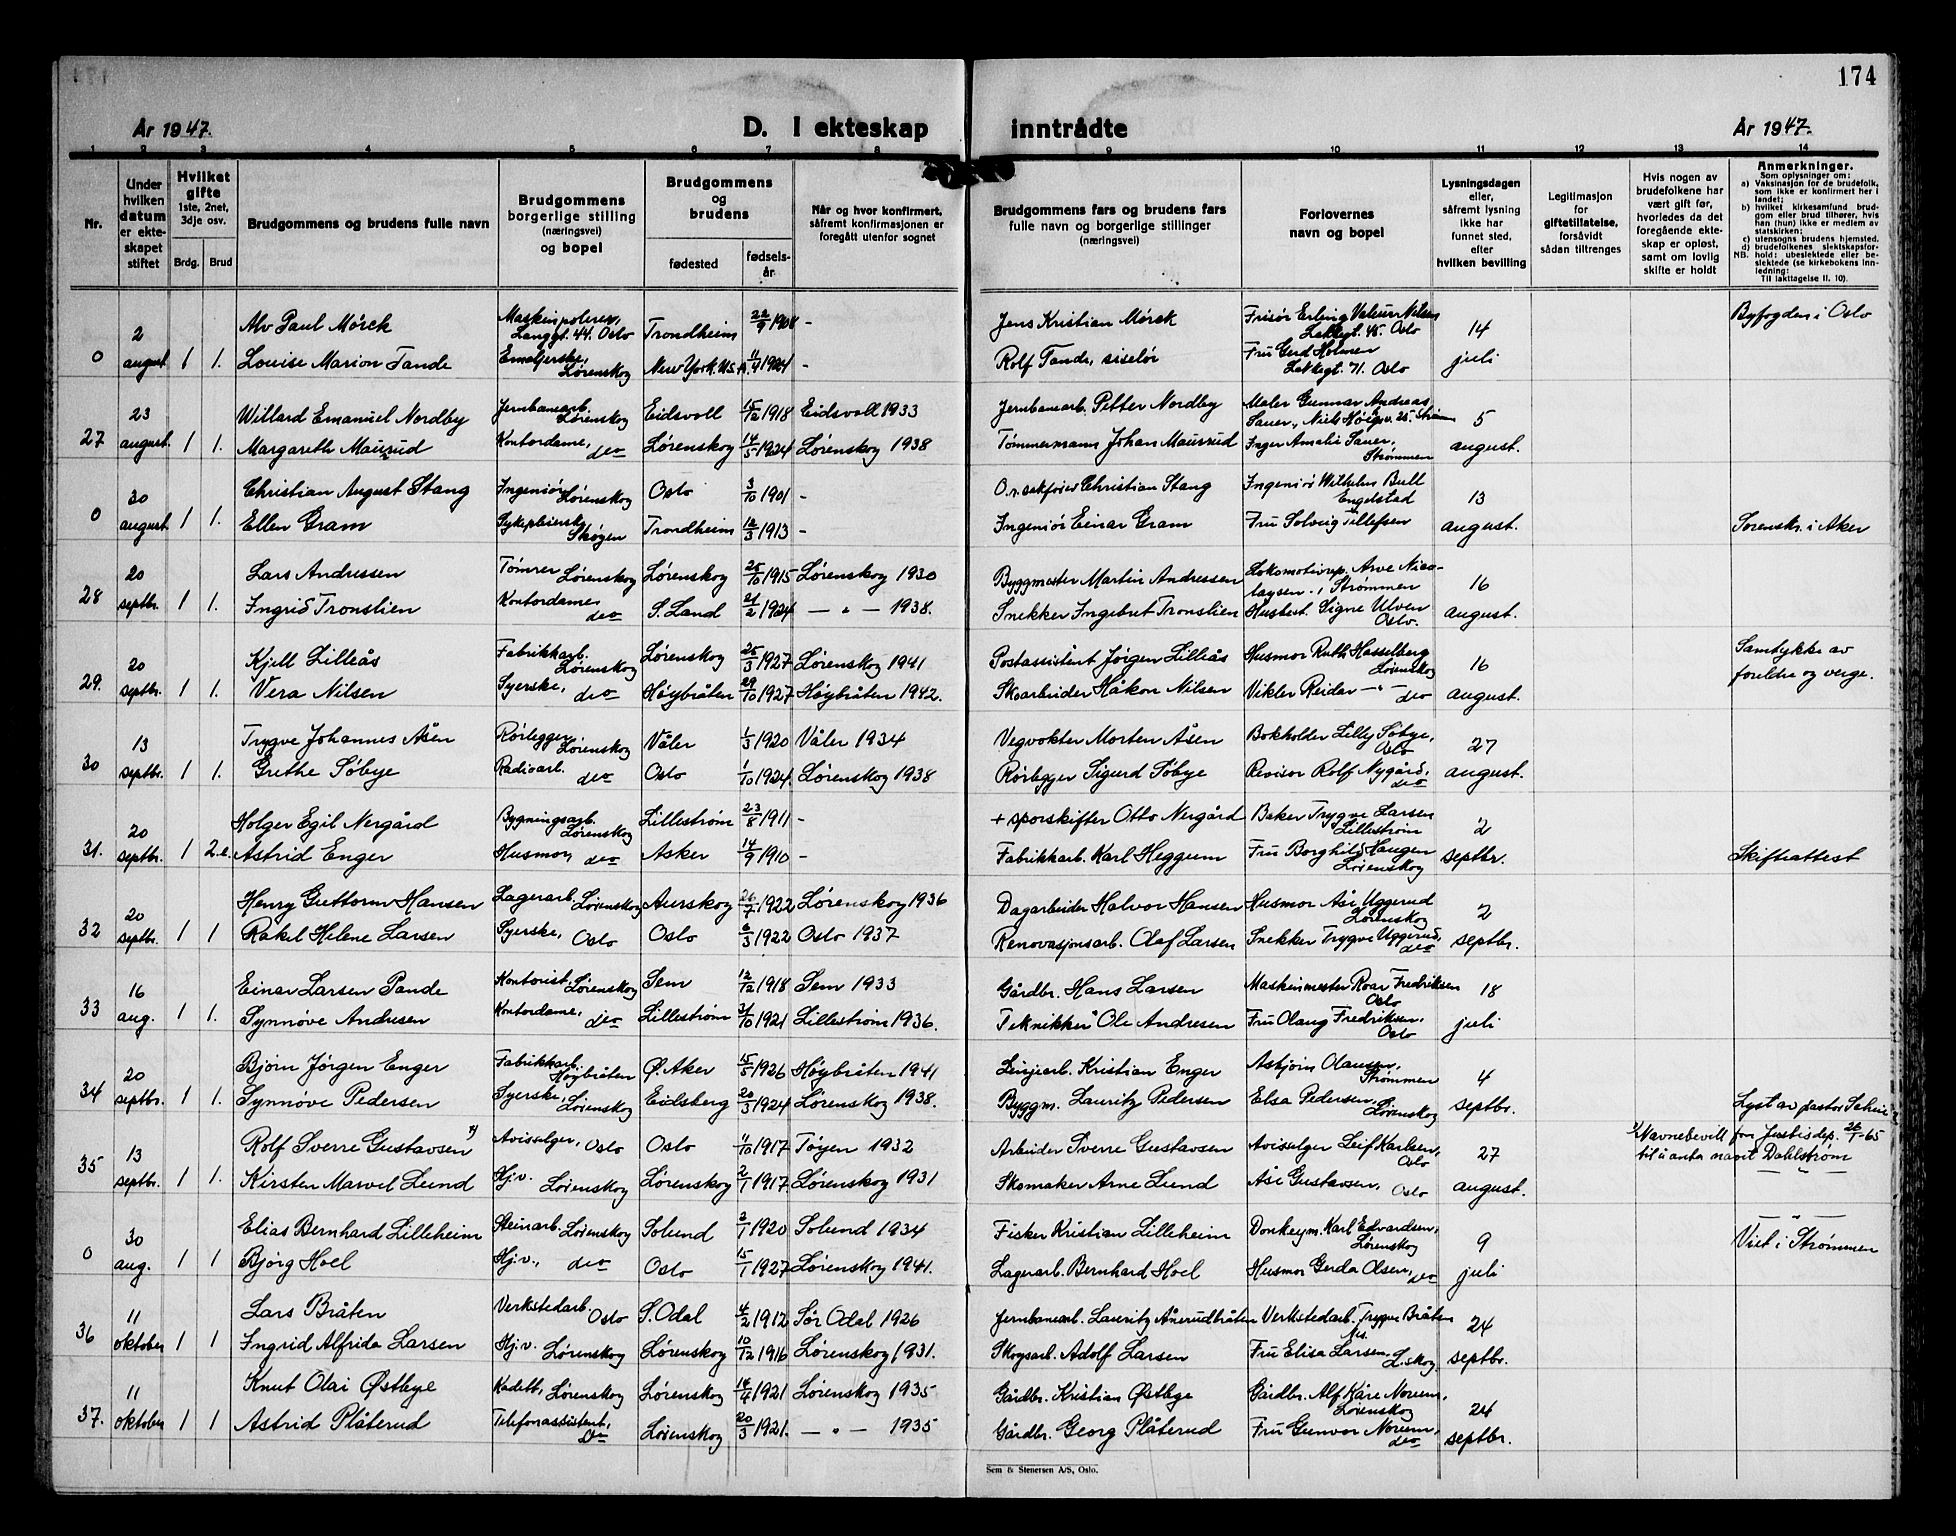 174
År 1947.
D. I ekteskap inntrådte
År 1947.
1 2 3 4 5 6 7 8 9 10 11 12 13 14
Nr.
Under hvilken datum er ekteskapet stiftet
Hvilket gifte 1ste, 2net, 3dje osv.
Brdg. Brud
Brudgommens og brudens fulle navn
Brudgommens borgerlige stilling (næringsvei) og bopel
Brudgommens og brudens
fødested
fødselsår
Når og hvor konfirmert, såfremt konfirmasjonen er foregått utenfor sognet
Brudgommens fars og brudens fars fulle navn og borgerlige stillinger (næringsvei)
Forlovernes navn og bopel
Lysningsdagen eller, såfremt lysning ikke har funnet sted, efter hvilken bevilling
Legitimasjon for giftetillatelse, forsåvidt sådan tiltrenges
Hvis nogen av brudefolkene har vært gift før, hvorledes da det foregående ekteskap er opløst, samt om lovlig skifte er holdt
Anmerkninger.
Som oplysninger om:
a) Vaksinasjon for de brudefolk, som ikke er konfirmert her i landet;
b) hvilket kirkesamfund brudgom eller brud tilhører, hvis han (hun) ikke er medlem av statskirken;
c) utensogns brudens hjemsted.
d) brudefolkenes slektskapsforhold: ubeslektede eller beslektede (se kirkebokens innledning:
NB.
Til iakttagelse II. 10).
2 Alv Paul Mörck Maskinpolerer, Langgt. 44. Oslo Trondheim 22/9 1908 - Jens Kristian Mörck Frisör Erling Nilsen Lakkegt. 45 Oslo 14 Byfogden i Oslo
0 august 1 1. Louise Marion Tande Emaljerske, Lørenskog New York. U.S.A. 1924 - Rolf Tande, siselör Fru Gerd Holmen Lakkegt. 71. Oslo juli
23 Willard Emanuel Nordby Jernbanearb. Lørenskog Eidsvoll 15/12 1918 Eidsvoll 1933 Jernbanearb. Petter Nordby Maler Gunnar Andreas Sauer, Niels 25. 5
27 august. 1 1. Margareth Mausud Kontordame, do Lørenskog 14/5 1924 Lørenskog 1938 Tømmermann Johan Mausud Inger Amalie Sauer, Strømmen august.
30 Christian August Stang Ingeniör Lørenskog Oslo 3/10 1901 - O.r.sakförer Christian Stang Ingeniör Wilhelm Bull Engelstad 13
0 august 1 1. Ellen Gram Sykepleiersk Skøyen Trondheim 12/3 1913 - Ingeniör Einar Gram Fru Solveig Tellefsen august. Sorenskr. i Aker
20 Lars Andressen Tømrer Lørenskog Lørenskog 25/10 1915 Lørenskog 1930 Byggmester Martin Andressen Lokomotivrep. Arve Nicolaysen, Strømmen 16
28 septbr. 1 1. Ingrid Tronslien Kontordame do S. Land 21/2 1924 — " — 1938. Snekker Ingebret Tronslien Husbest. Signe Ulven Oslo. august.
20 Kjell Lilleås Fabrikkarb. Lørenskog Lørenskog 25/3 1927 Lørenskog 1941 Postassistent Jørgen Lilleås Husmor Ruth Hasselberg Lørenskog 16 Samtykke av
29. septbr. 1 1. Vera Nilsen Syerske, do Høybråten 29/10 1927 Høybråten 1942. Skoarbeider Håkon Nilsen Vikler Reidar — " — do august. foreldre og verge.
13 Trygve Johannes Åsen Rørlegger Lørenskog Våler 1/3 1920 Våler 1934 Vegvokter Morten Åsen Bokholder Lilly Söbye, Oslo 27
30 septbr. 1 1. Grethe Söbye Radioarb. do Oslo 1/10 1924. Lørenskog 1938 Rørlegger Sigurd Söbye Revisor Rolf Nygård, do august.
20 Holger Egil Nergård Bygningsarb. Lørenskog Lillestrøm 23/8 1911 - + sporskifter Otto Nergård Baker Trygve Larsen Lillestrøm 2
31. septbr. 1 2.e. Astrid Enger Husmor, do Asker 14/9 1910 - Fabrikkarb. Karl Heggum Fru Borghild Haugen Lørenskog septbr. Skifteattest
20 Henry Guttorm Hansen Lagerarb. Lørenskog Aurskog 26/7 1922 Lørenskog 1936 Dagarbeider Halvor Hansen Husmor Åse Uggerud Lørenskog 2
32 septbr. 1 1 Rakel Helene Larsen Syerske, Oslo Oslo 6/3 1922 Oslo 1937 Renovasjonsarb. Olaf Larsen Snekker Trygve Uggerud, do septbr.
16 Einar Larsen Pande Kontorist, Lørenskog Sem 12/12 1918 Sem 1933 Gårdbr. Hans Larsen Maskinmester Roar Fredriksen Oslo 18
33 aug. 1 1. Synnöve Andresen Kontordame, do Lillestrøm 21/10 1921 Lillestrøm 1936. Tekniker Ole Andresen Fru Olaug Fredriksen, Oslo juli
20 Björn Jörgen Enger Fabrikkarb. Høybråten Ø. Aker 15/5 1926 Høybråten 1941 Linjearb. Kristian Enger Asbjörn Olausen, Strømmen 4
34 septbr. 1 1. Synnöve Pedersen Syerske, Lørenskog Eidsberg 20/3 1924 Lørenskog 1938. Byggm. Lauritz Pedersen Elsa Pedersen, Lørenskog septbr. Lyst av pastor
13 Rolf Sverre Gustavsen x) Avisselger, Oslo Oslo 11/10 1917 Töyen 1932 Arbeider Sverre Gustavsen Avisselger Leif Karlsen, Oslo 27 x) Navnebevill fra Justisdep. 26/1-65
til å anta navnet Dahlström
35 septbr. 1 1. Kirsten Marvel Lund Hj.v. Lørenskog Lørenskog 2/1 1917. Lørenskog 1931 Skomaker Arne Lund Åse Gustavsen, Oslo august. — " —
30 Elias Bernhard Lilleheim Steinarb. Lørenskog Solund 2/1 1920 Solund 1934 Fisker Kristian Lilleheim Donkeym. Karl Edvardsen, Lørenskog 9 — " —
0 aug. 1 1 Björg Hoel Hj.v., do Oslo 15/1 1927 Lørenskog 1941. Lagerarb. Bernhard Hoel Husmor Gerda Olsen, do juli Viet i Strømmen
11 Lars Bråten Verkstedarb. Oslo S. Odal 4/2 1912 Sør Odal 1926 Jernbanearb. Lauritz Ånerudbråten Verkstedarb. Trygve Bråten 24
36 oktober 1 1 Ingrid Alfrida Larsen Hj.v. Lørenskog Lørenskog 10/12 1916 Lørenskog 1931. Skogsarb. Adolf Larsen Fru Elisa Larsen, L.skog. septbr.
11 Knut Olai Østbye Kadett, Lørenskog Lørenskog 14/4 1921 Lørenskog 1935 Gårdbr. Kristian Østbye Gårdbr. Alf Kåre Noreum, Lørenskog 24
37. oktober 1 1 Astrid Plåterud Telefonassistent, Do Lørenskog 20/3 1921. — " — 1935 Gårdbr. Georg Plåterud Fru Gunvor Noreum, do septbr.
Sem & Stenersen A/S, Oslo.